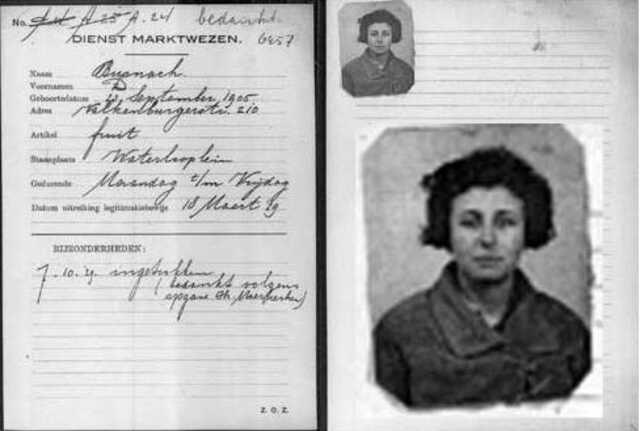 No. A 25 A. 24 bedankt.
DIENST MARKTWEZEN. 6257
Naam
Voornamen D
Geboortedatum 13 September 1905
Adres Valkenburgerstr. 210
Artikel fruit
Staanplaats Waterlooplein
Gedurende Maandag t/m Vrijdag
Datum uitreiking legitimatiebewijs 18 Maart 29
BIJZONDERHEDEN:
7.10.29 ingetrokken
(bedankt volgens
opgave
Z. O. Z.